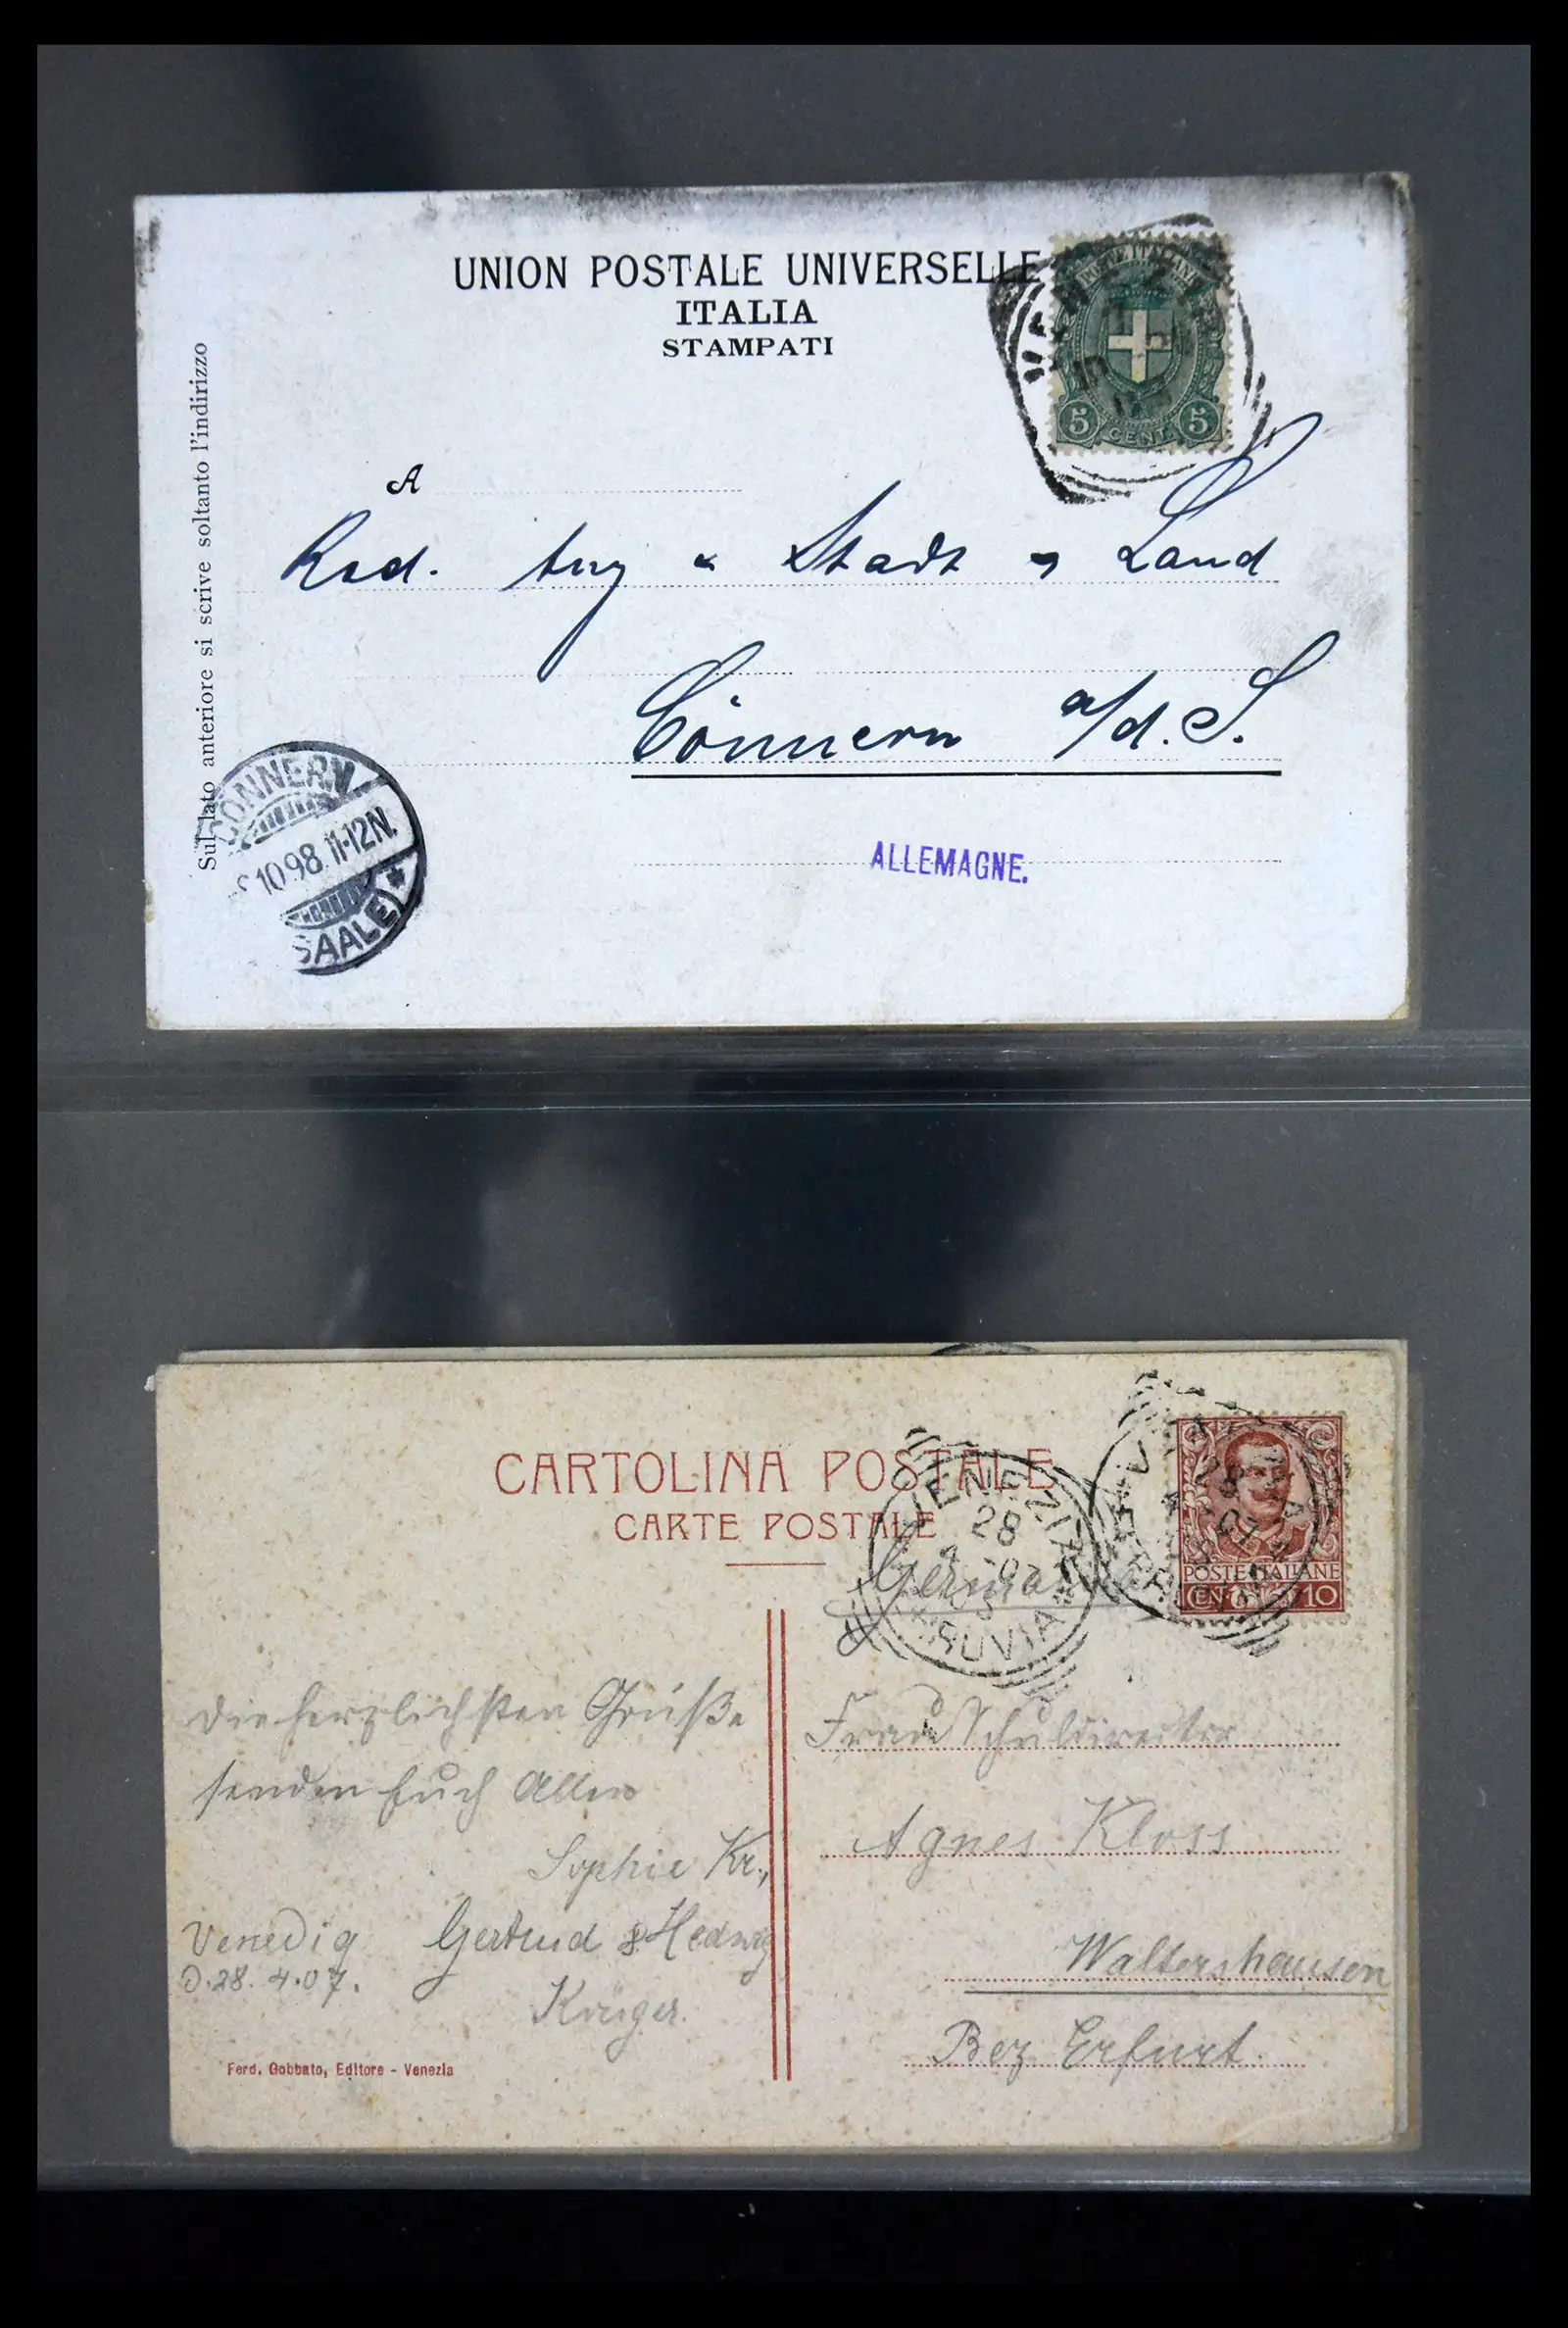 UNION POSTALE UNIVERSELLE
ITALIA
STAMPATI
POSTE ITALIANE
5 CENT. 5
Sul lato anteriore si scrive soltanto l'indirizzo
A
Red. Anz " Stadt " Land
Cönnern a/d. S.
CÖNNERN
10 98 11-12N.
(SAALE)
ALLEMAGNE.
CARTOLINA POSTALE
CARTE POSTALE
VENEZIA
28
FERROVIA
POSTE ITALIANE
CENT. 10
Germania
Die herzlichsten Grüße
senden Euch Allen
Sophie Kr.,
Gertrud & Hedwig
Krüger.
Venedig
D. 28. 4. 07.
Frau Schuldirektor
Agnes Kloss
Waltershausen
Bez Erfurt.
Ferd. Gobbato, Editore - Venezia